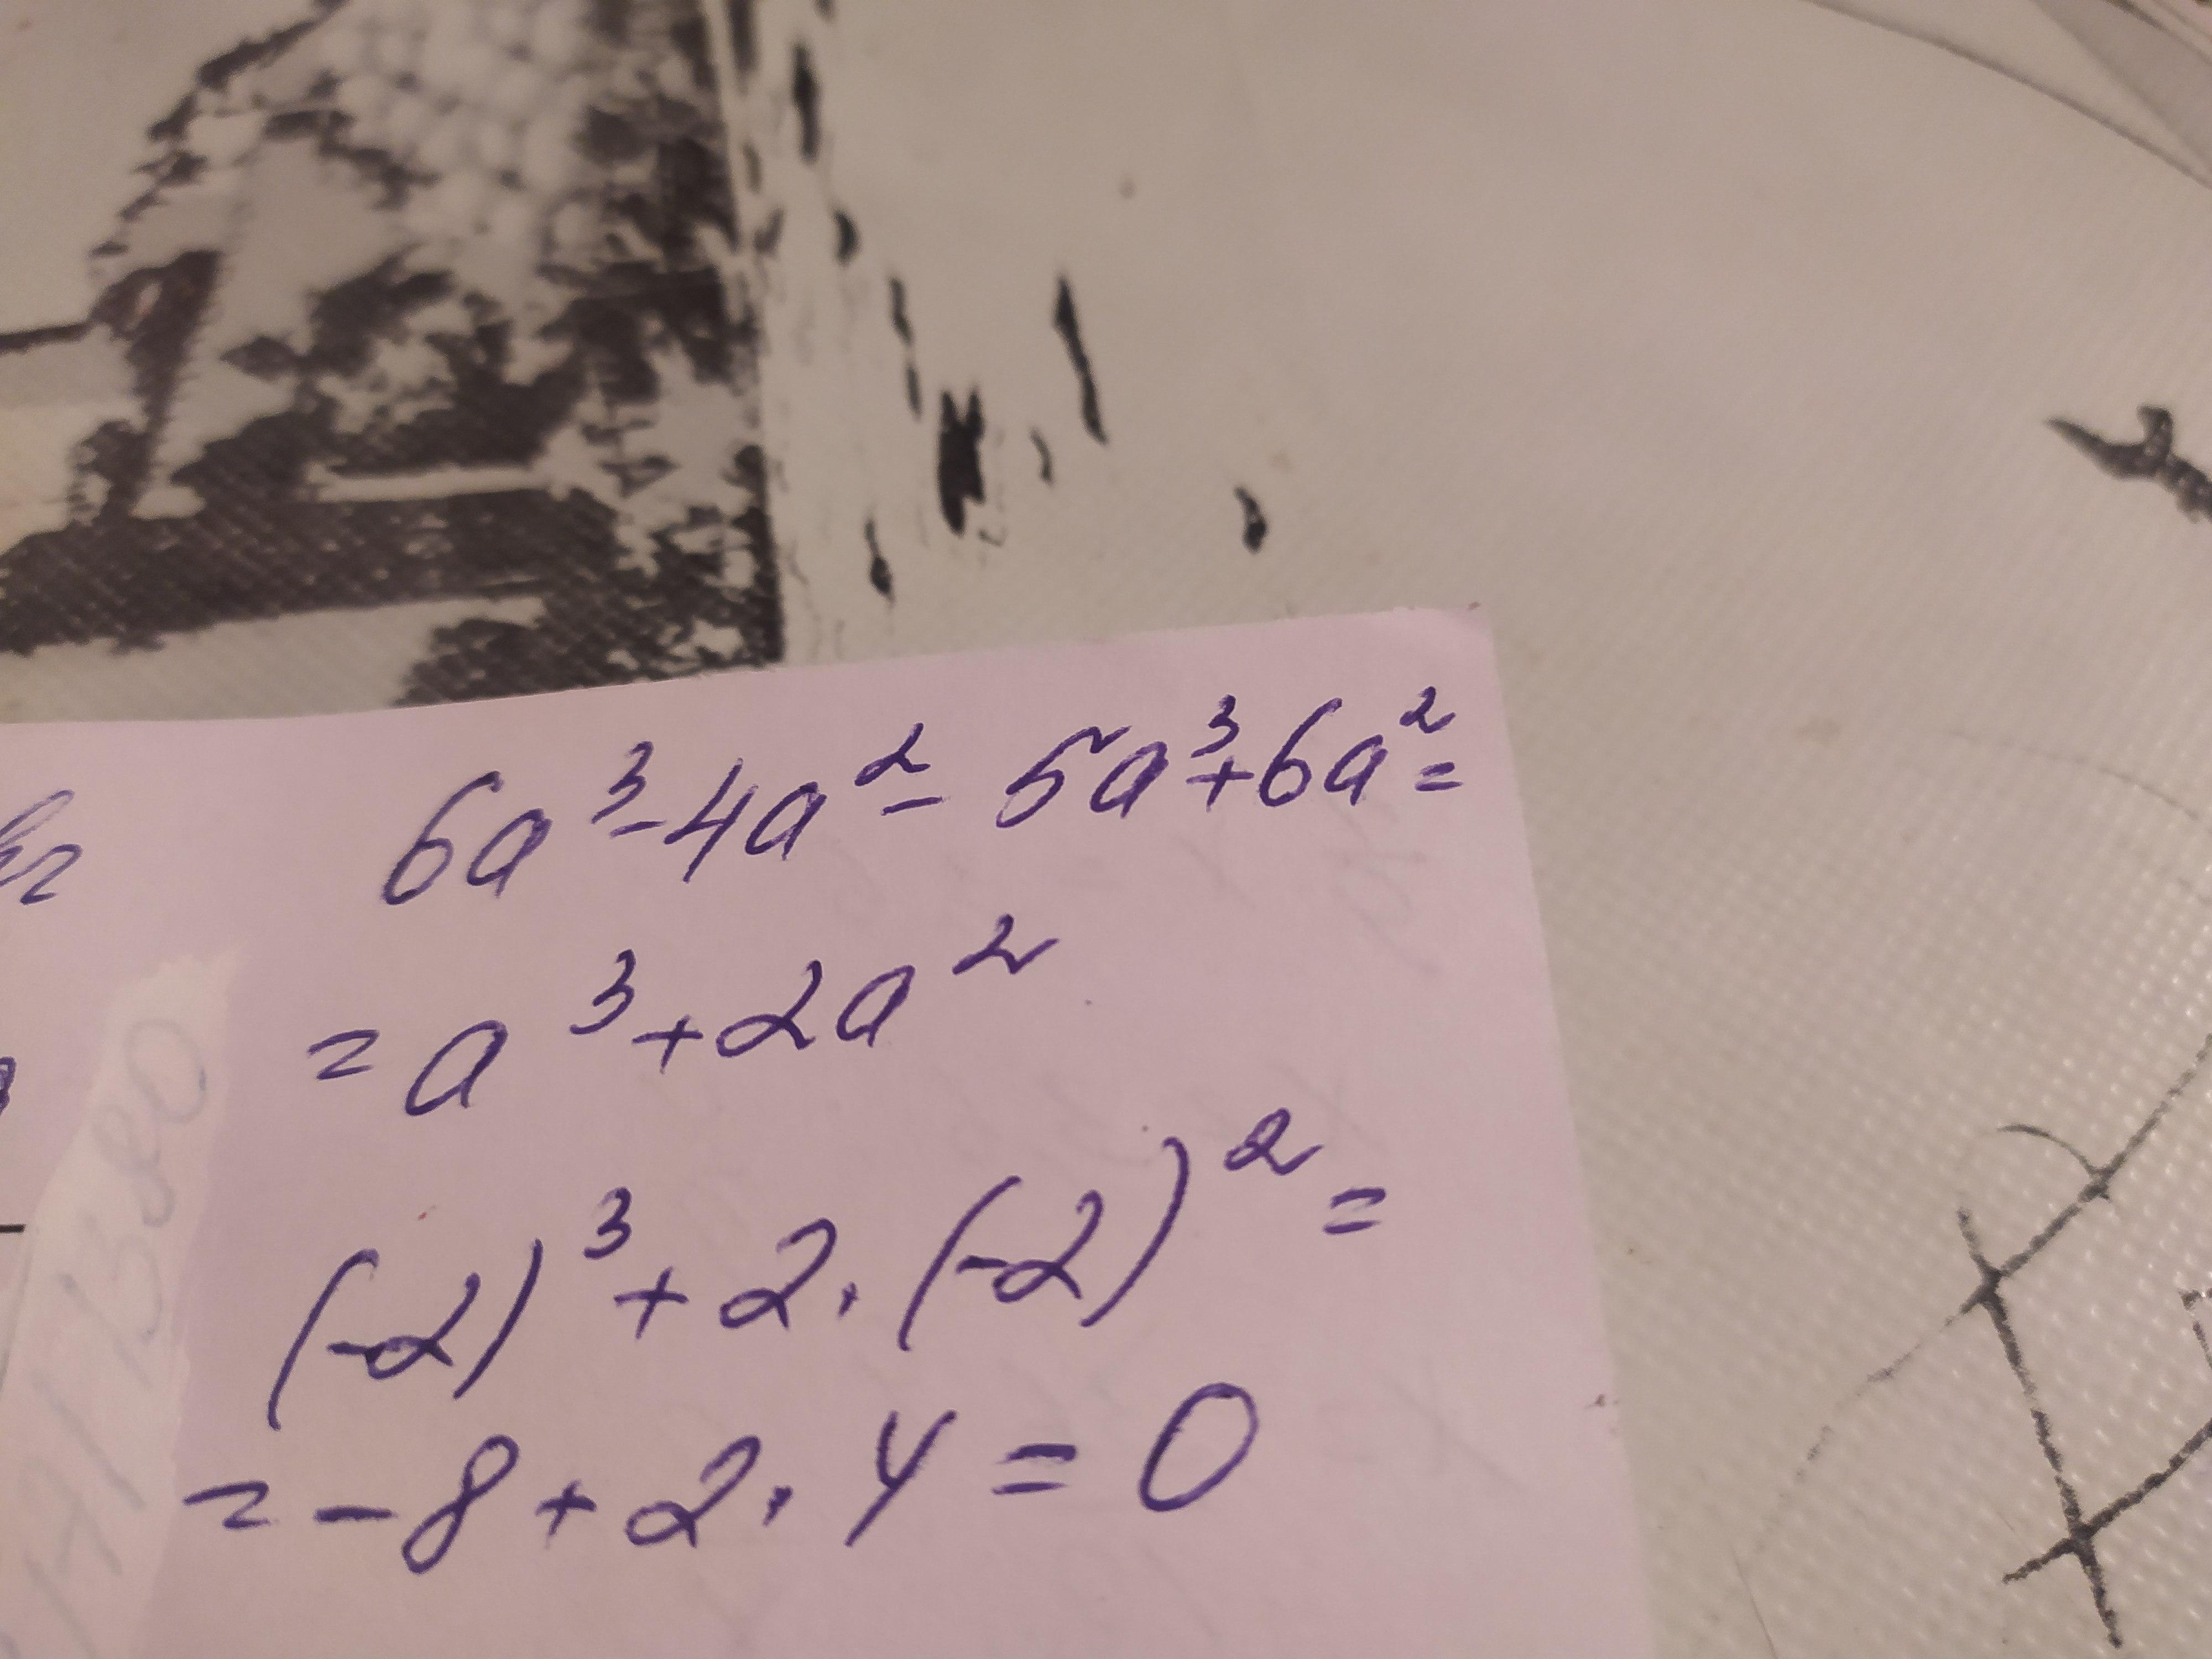 6a³-4a²-5a³+6a²=
=a³+2a²
(-2)³+2·(-2)²=
=-8+2·4=0